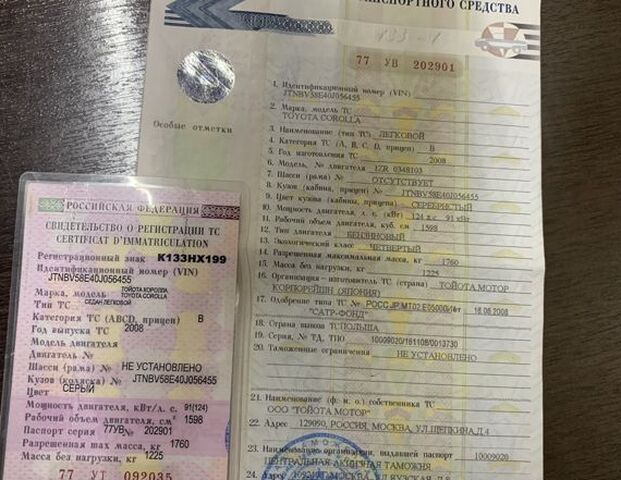 ТРАНСПОРТНОГО СРЕДСТВА
77 УВ 202901
Особые отметки
1. Идентификационный номер (VIN)
JTNBV58E40J056455
2. Марка, модель ТС
TOYOTA COROLLA
3. Наименование (тип ТС) ЛЕГКОВОЙ
4. Категория ТС (А, В, С, D, прицеп) B
5. Год изготовления ТС 2008
6. Модель, № двигателя 1ZR 0348103
7. Шасси (рама) № ОТСУТСТВУЕТ
8. Кузов (кабина, прицеп) № JTNBV58E40J056455
9. Цвет кузова (кабины, прицепа) СЕРЕБРИСТЫЙ
10. Мощность двигателя, л. с. (кВт) 124 л.с. 91 кВт
11. Рабочий объем двигателя, куб. см 1598
12. Тип двигателя БЕНЗИНОВЫЙ
13. Экологический класс ЧЕТВЕРТЫЙ
14. Разрешенная максимальная масса, кг 1760
15. Масса без нагрузки, кг 1225
16. Организация – изготовитель ТС (страна) ТОЙОТА МОТОР
КОРПОРЕЙШН (ЯПОНИЯ)
17. Одобрение типа ТС № РОСС JP.МТ02.Е05000 от 18.06.2008
"САТР-ФОНД"
18. Страна вывоза ТС ПОЛЬША
19. Серия, № ТД, ТПО 10009020/161108/0013730
20. Таможенные ограничения НЕ УСТАНОВЛЕНО
21. Наименование (ф. и. о.) собственника ТС
ООО "ТОЙОТА МОТОР"
22. Адрес 129090, РОССИЯ, МОСКВА, УЛ.ЩЕПКИНА,Д.4
23. Наименование организации, выдавшей паспорт 10009020
ЦЕНТРАЛЬНАЯ АКЦИЗНАЯ ТАМОЖНЯ
24. Адрес МОСКВА УЛ.ЯУЗСКАЯ
РОССИЙСКАЯ ФЕДЕРАЦИЯ
СВИДЕТЕЛЬСТВО О РЕГИСТРАЦИИ ТС
CERTIFICAT D'IMMATRICULATION
Регистрационный знак К133НХ199
Идентификационный номер (VIN)
JTNBV58E40J056455
Марка, модель ТОЙОТА КОРОЛЛА
TOYOTA COROLLA
Тип ТС СЕДАН ЛЕГКОВОЙ
Категория ТС (ABCD, прицеп) B
Год выпуска ТС 2008
Модель двигателя
Двигатель №
Шасси (рама) № НЕ УСТАНОВЛЕНО
Кузов (коляска) № JTNBV58E40J056455
Цвет СЕРЫЙ
Мощность двигателя, кВт/л. с. 91(124)
Рабочий объем двигателя, см³ 1598
Паспорт серия 77УВ № 202901
Разрешенная max масса, кг 1760
Масса без нагрузки, кг 1225
77 УТ 092035